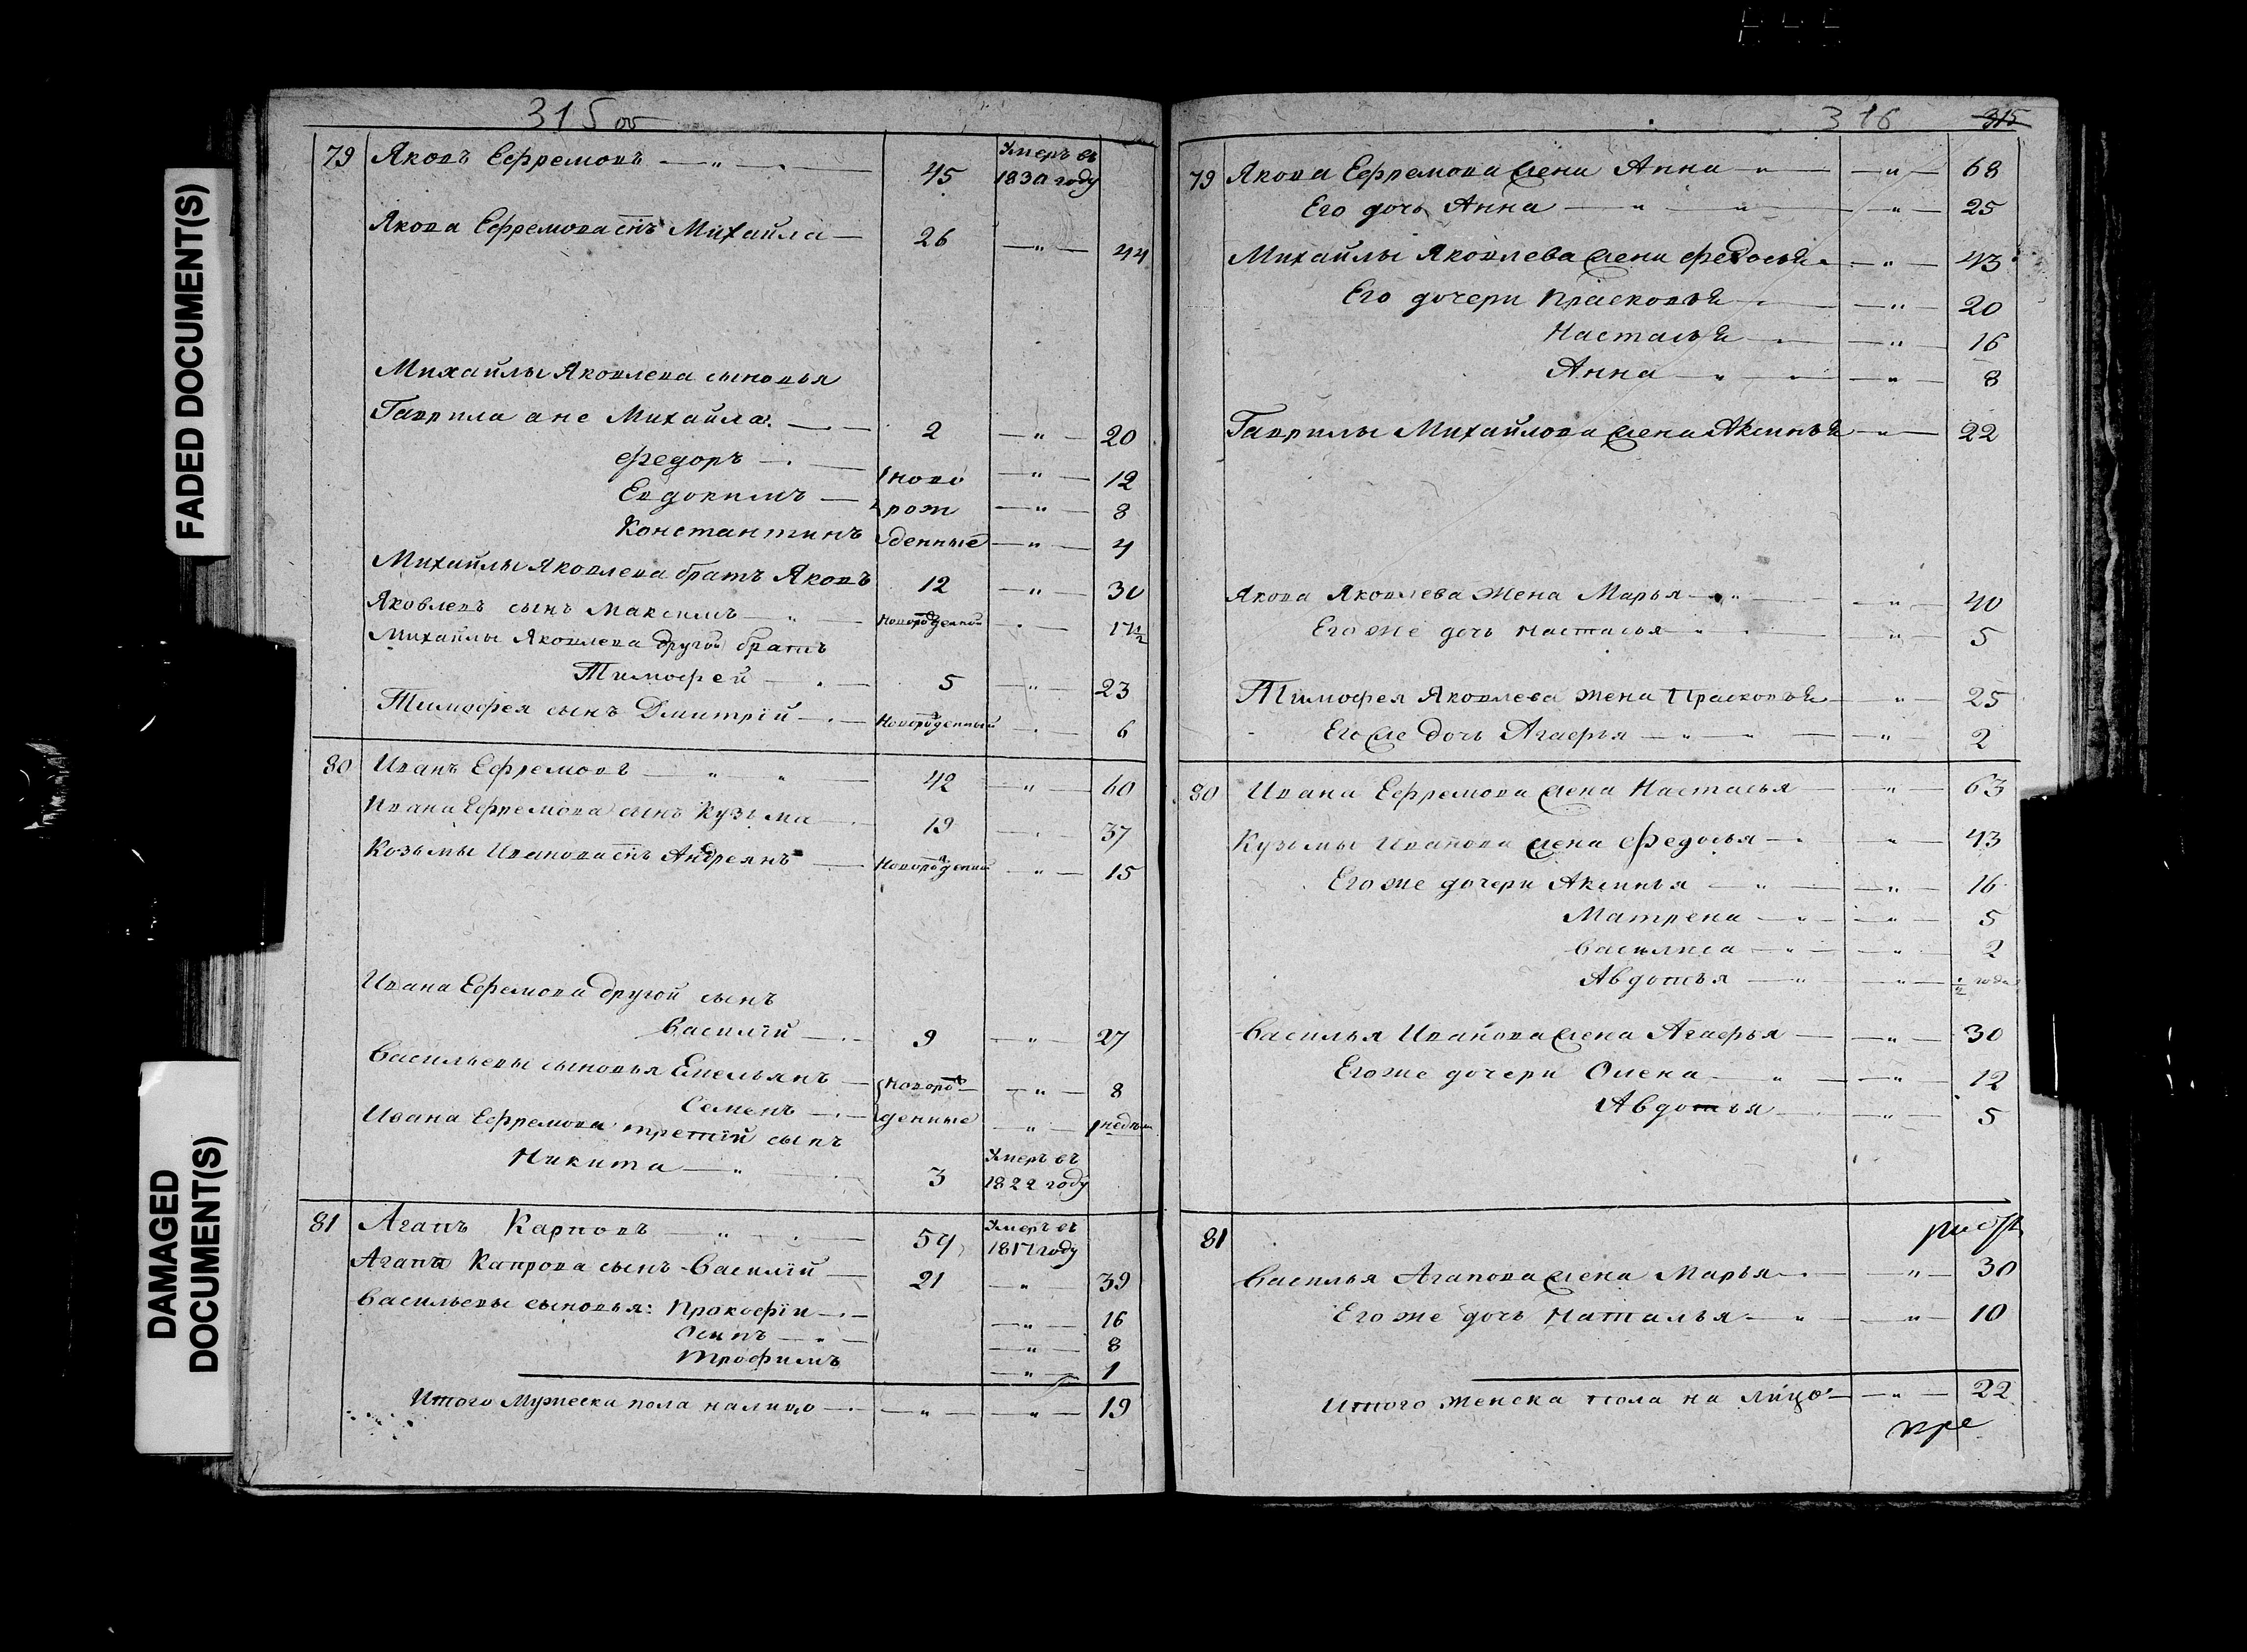 FADED DOCUMENT(S)
DAMAGED DOCUMENT(S)
315 об
79 Яковъ Ефремовъ — 45 Умеръ въ 1830 году
Якова Ефремова снъ Михайла — 26 — 44
Михайлы Яковлева сыновья
Гаврила а не Михайла — 2 — 20
Федоръ — ново — 12
Евдокимъ — рож — 8
Константинъ денные — 4
Михайлы Яковлева братъ Яковъ 12 — 30
Яковлевъ сынъ Максимъ — Новорожденной —
Михайлы Яковлева другой братъ
Тимофей — 5 — 23
Тимофея сынъ Дмитрій — Новорожденный — 6
80 Иванъ Ефремовъ — 42 — 60
Ивана Ефремова сынъ Кузьма — 19 — 37
Козьмы Иванова снъ Андреянъ — Новорожденный — 15
Ивана Ефремова другой сынъ
Василій — 9 — 27
Васильевы сыновья Емельянъ — новорож — 8
Семенъ — денные — 1 недели
Ивана Ефремова третій сынъ
Никита — 3 Умеръ въ 1822 году
81 Агапъ Карповъ — 59 Умеръ въ 1817 году
Агапа Капрова сынъ Василій — 21 — 39
Васильевы сыновья: Прокофіи — 16
Осипъ — 8
Трофимъ — 1
Итого Мужеска пола налицо — 19
316 315
79 Якова Ефремова жена Анна — 68
Его дочь Анна — 25
Михайлы Яковлева жена Федосья — 43
Его дочери Прасковья — 20
Настасья — 16
Анна — 8
Гаврилы Михайлова жена Аксинья — 22
Якова Яковлева жена Марья — 40
Его же дочь Настасья — 5
Тимофея Яковлева жена Прасковья — 25
Его же дочь Агафья — 2
80 Ивана Ефремова жена Настасья — 63
Кузьмы Иванова жена Федосья — 43
Его же дочери Аксинья — 16
Матрена — 5
Василиса — 2
Авдотья — года
Василья Иванова жена Агафья — 30
Его же дочери Олена — 12
Авдотья — 5
81
Василья Агапова жена Марья — 30
Его же дочь Наталья — 10
Итого женска пола на лицо — 22